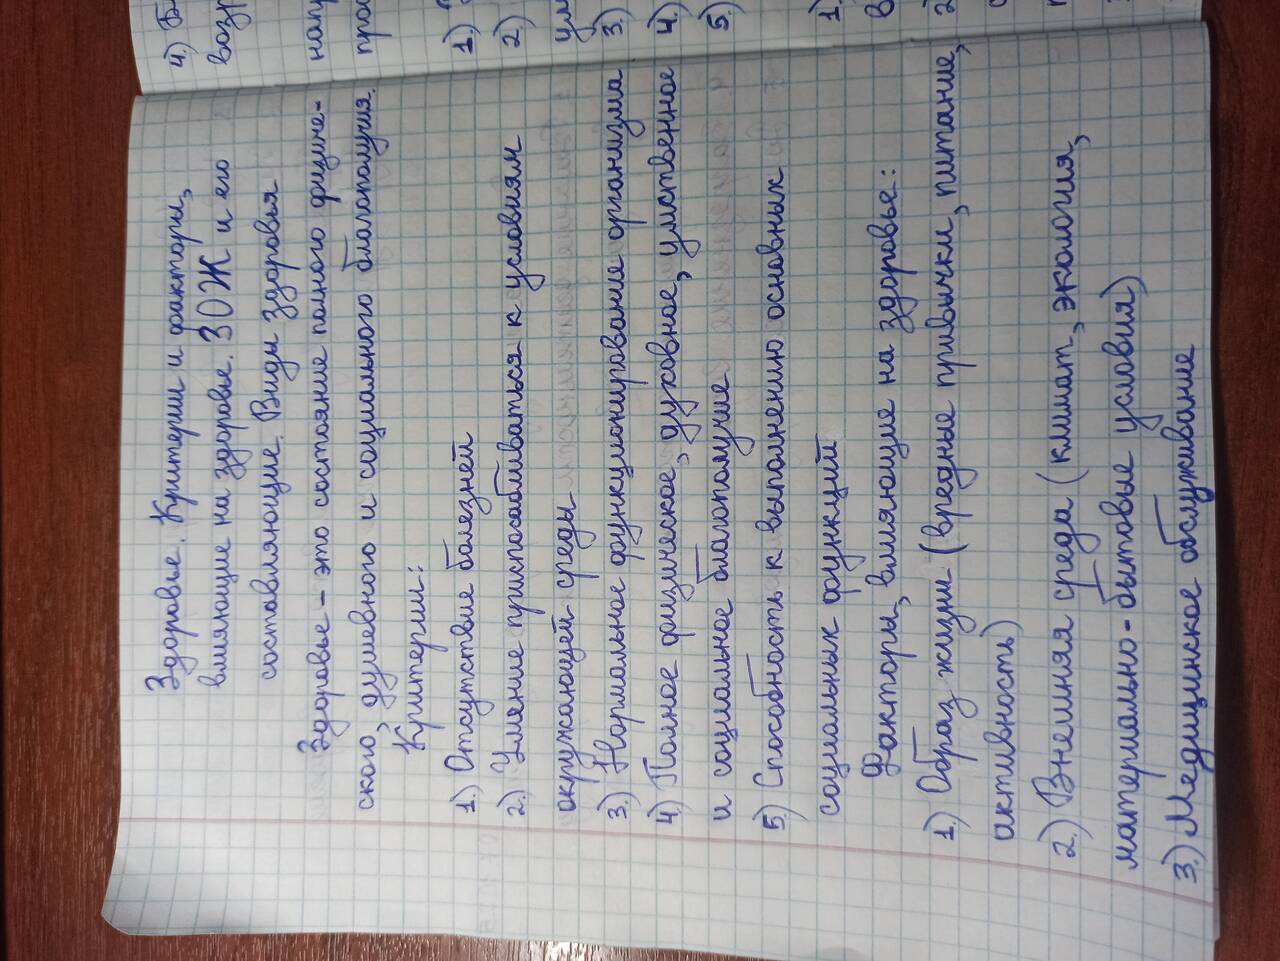 Здоровье. Критерии и факторы,
влияющие на здоровье. ЗОЖ и его
составляющие. Виды здоровья
Здоровье – это состояние полного физиче-
ского, душевного и социального благополучия.
Критерии:
1.) Отсутствие болезней
2.) Умение приспосабливаться к условиям
окружающей среды
3.) Нормальное функционирование организма
4.) Полное физическое, духовное, умственное
и социальное благополучие
5.) Способность к выполнению основных
социальных функций
Факторы, влияющие на здоровье:
1.) Образ жизни (вредные привычки, питание,
активность)
2.) Внешняя среда (климат, экология,
материально-бытовые условия)
3.) Медицинское обслуживание
4.)
1.)
2)
3.)
4.)
5.)
1.)